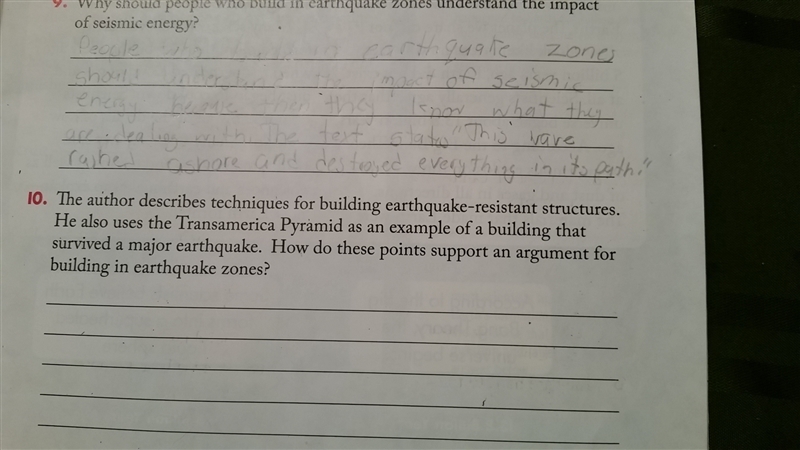 9. Why should people who build in earthquake zones understand the impact
of seismic energy?
People who build in earthquake zones
should understand the impact of seismic
energy because then they know what they
are dealing with. The text states "This wave
rushed ashore and destroyed everything in its path."
10. The author describes techniques for building earthquake-resistant structures.
He also uses the Transamerica Pyramid as an example of a building that
survived a major earthquake. How do these points support an argument for
building in earthquake zones?